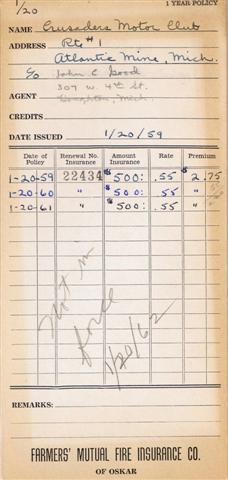 1/20
1 YEAR POLICY
NAME Crusaders Motor Club
ADDRESS Rte #1
Atlantic Mine, Mich.
c/o John C Good
307 W. 4th St.
AGENT Houghton, Mich.
CREDITS
DATE ISSUED 1/20/59
Date of Policy Renewal No. Insurance Amount Insurance Rate Premium
1-20-59 22434 $500: .55 $2.75
1-20-60 " $500: .55 "
1-20-61 " $500: .55 "
Not in
force
1/20/62
REMARKS:
FARMERS' MUTUAL FIRE INSURANCE CO.
OF OSKAR